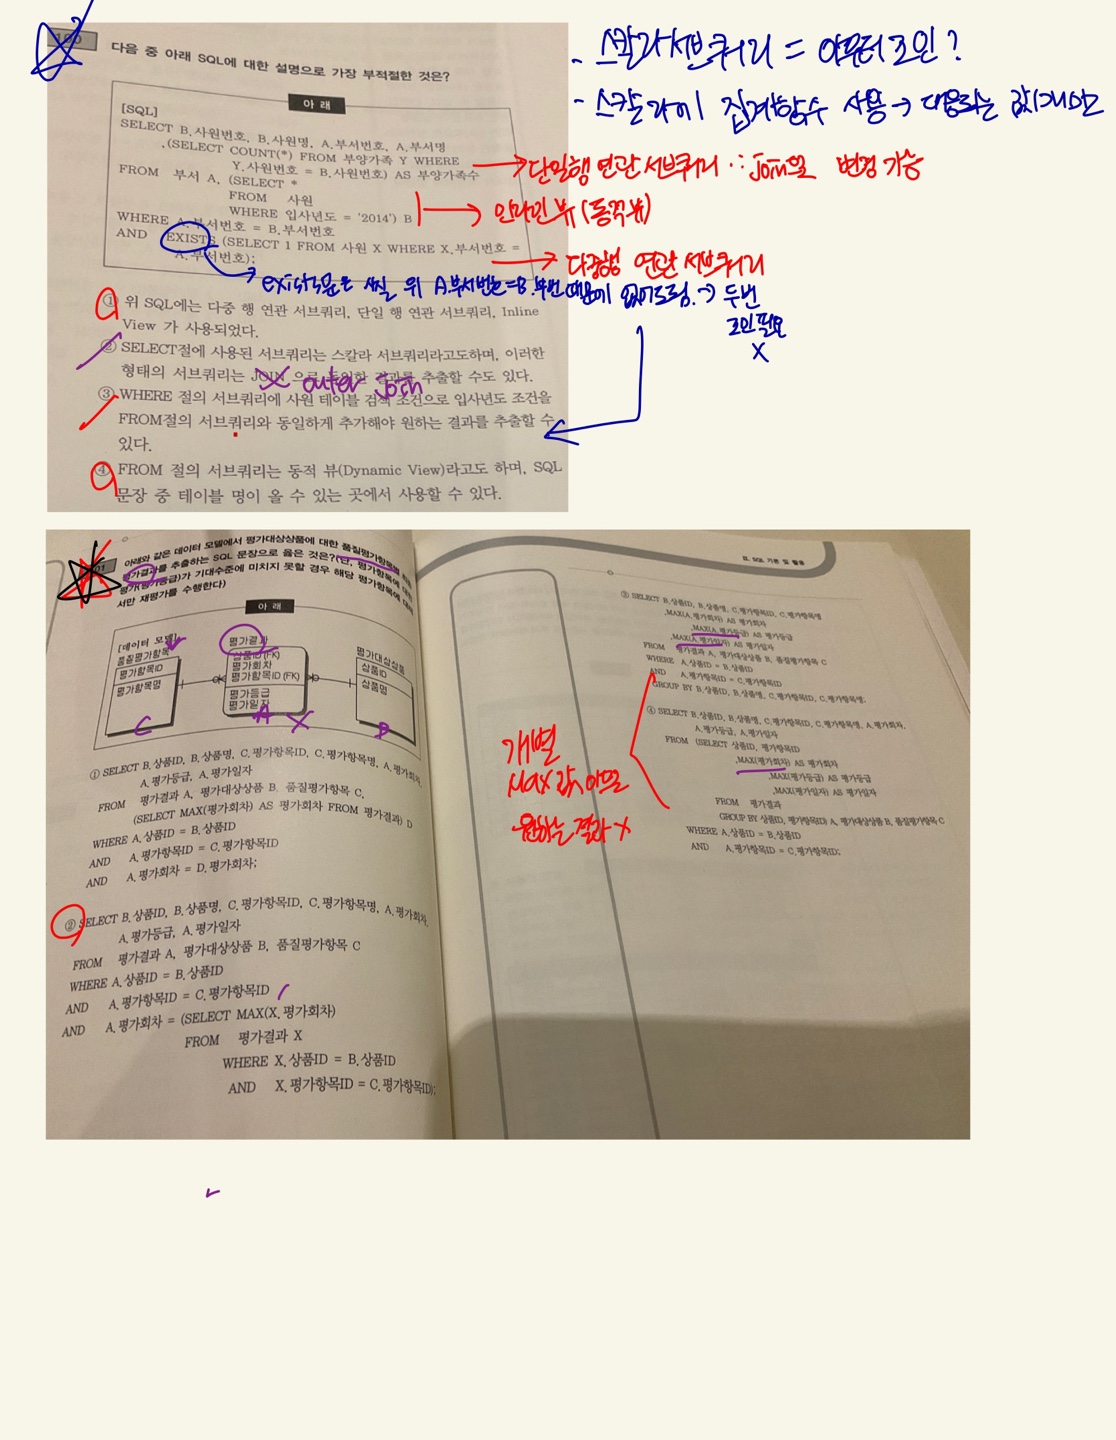 다음 중 아래 SQL에 대한 설명으로 가장 부적절한 것은?
아 래
[SQL]
SELECT B.사원번호, B.사원명, A.부서번호, A.부서명
,(SELECT COUNT(*) FROM 부양가족 Y WHERE
Y.사원번호 = B.사원번호) AS 부양가족수
FROM 부서 A, (SELECT *
FROM 사원
WHERE 입사년도 = '2014') B
WHERE A.부서번호 = B.부서번호
AND EXISTS (SELECT 1 FROM 사원 X WHERE X.부서번호 =
A.부서번호);
- 스칼라 서브쿼리 = 아우터 조인?
- 스칼라에 집계함수 사용 → 대응하는 값
→ 단일행 연관 서브쿼리 ∴ join으로 변경 가능
→ 인라인 뷰 (동적 뷰)
→ 다중행 연관 서브쿼리
→ 두번
조인 필요
X
① 위 SQL에는 다중 행 연관 서브쿼리, 단일 행 연관 서브쿼리, Inline
View 가 사용되었다.
② SELECT절에 사용된 서브쿼리는 스칼라 서브쿼리라고도하며, 이러한
형태의 서브쿼리는 JOIN 으로 동일한 결과를 추출할 수도 있다.
X outer join
③ WHERE 절의 서브쿼리에 사원 테이블 검색 조건으로 입사년도 조건을
FROM절의 서브쿼리와 동일하게 추가해야 원하는 결과를 추출할 수
있다.
④ FROM 절의 서브쿼리는 동적 뷰(Dynamic View)라고도 하며, SQL
문장 중 테이블 명이 올 수 있는 곳에서 사용할 수 있다.
아래와 같은 데이터 모델에서 평가대상상품에 대한 품질평가항목별
평가결과를 추출하는 SQL 문장으로 옳은 것은?(단, 평가항목에 대한
평가(평가등급)가 기대수준에 미치지 못할 경우 해당 평가항목에 대해
서만 재평가를 수행한다)
아 래
[데이터 모델]
품질평가항목
평가항목ID
평가항목명
C
평가결과
상품ID (FK)
평가회차
평가항목ID (FK)
평가등급
평가일자
A X
평가대상상품
상품ID
상품명
B
① SELECT B.상품ID, B.상품명, C.평가항목ID, C.평가항목명, A.평가회차,
A.평가등급, A.평가일자
FROM 평가결과 A, 평가대상상품 B, 품질평가항목 C,
(SELECT MAX(평가회차) AS 평가회차 FROM 평가결과) D
WHERE A.상품ID = B.상품ID
AND A.평가항목ID = C.평가항목ID
AND A.평가회차 = D.평가회차;
② SELECT B.상품ID, B.상품명, C.평가항목ID, C.평가항목명, A.평가회차,
A.평가등급, A.평가일자
FROM 평가결과 A, 평가대상상품 B, 품질평가항목 C
WHERE A.상품ID = B.상품ID
AND A.평가항목ID = C.평가항목ID
AND A.평가회차 = (SELECT MAX(X.평가회차)
FROM 평가결과 X
WHERE X.상품ID = B.상품ID
AND X.평가항목ID = C.평가항목ID);
II. SQL 기본 및 활용
③ SELECT B.상품ID, B.상품명, C.평가항목ID, C.평가항목명
,MAX(A.평가회차) AS 평가회차
,MAX(A.평가등급) AS 평가등급
,MAX(A.평가일자) AS 평가일자
FROM 평가결과 A, 평가대상상품 B, 품질평가항목 C
WHERE A.상품ID = B.상품ID
AND A.평가항목ID = C.평가항목ID
GROUP BY B.상품ID, B.상품명, C.평가항목ID, C.평가항목명;
④ SELECT B.상품ID, B.상품명, C.평가항목ID, C.평가항목명, A.평가회차,
A.평가등급, A.평가일자
FROM (SELECT 상품ID, 평가항목ID
,MAX(평가회차) AS 평가회차
,MAX(평가등급) AS 평가등급
,MAX(평가일자) AS 평가일자
FROM 평가결과
GROUP BY 상품ID, 평가항목ID) A, 평가대상상품 B, 품질평가항목 C
WHERE A.상품ID = B.상품ID
AND A.평가항목ID = C.평가항목ID;
개별
Max값이므로
원하는 결과 X